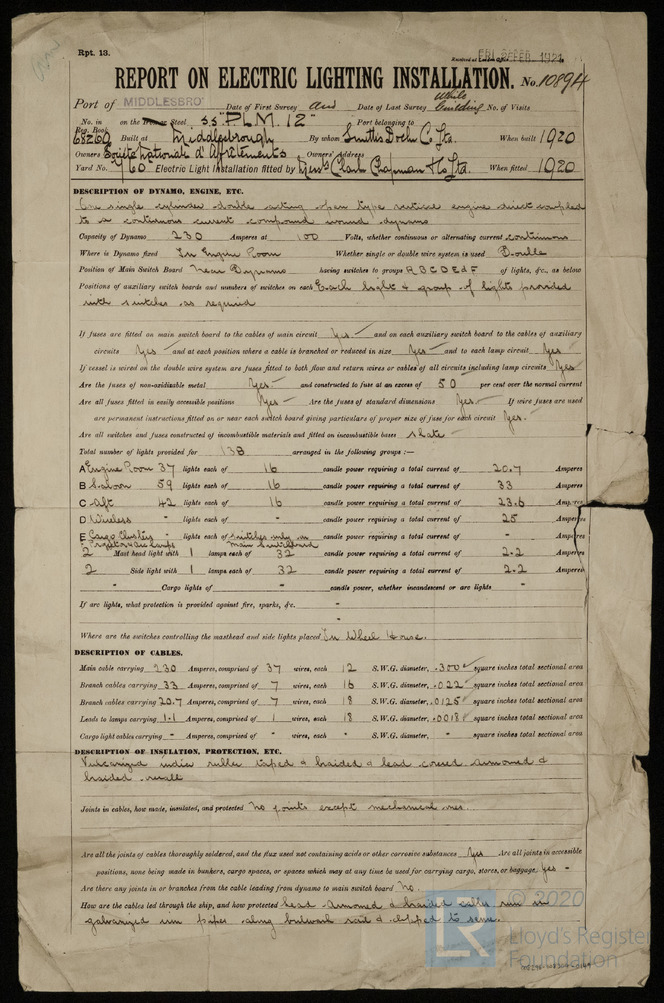 Rpt. 13.
FEB. 1921
REPORT ON ELECTRIC LIGHTING INSTALLATION. No. 10894
Port of MIDDLESBRO' Date of First Survey and Date of Last Survey while building No. of Visits
No. in Reg. Book 68260 on the Iron or Steel SS "P.L.M. 12" Port belonging to
Built at Middlesbrough By whom Smiths Dock Co Ltd. When built 1920
Owners Societe Nationale d'Affretements Owners' Address
Yard No. 760 Electric Light Installation fitted by Messrs Clark Chapman & Co Ltd. When fitted 1920
DESCRIPTION OF DYNAMO, ENGINE, ETC.
One single cylinder double acting open type vertical engine direct coupled
to a continuous current compound wound dynamo
Capacity of Dynamo 230 Amperes at 100 Volts, whether continuous or alternating current continuous
Where is Dynamo fixed In Engine Room Whether single or double wire system is used Double
Position of Main Switch Board Near Dynamo having switches to groups A B C D E & F of lights, &c., as below
Positions of auxiliary switch boards and numbers of switches on each Each light & group of lights provided
with switches as required
If fuses are fitted on main switch board to the cables of main circuit Yes and on each auxiliary switch board to the cables of auxiliary
circuits Yes and at each position where a cable is branched or reduced in size Yes and to each lamp circuit Yes
If vessel is wired on the double wire system are fuses fitted to both flow and return wires or cables of all circuits including lamp circuits Yes
Are the fuses of non-oxidizable metal Yes and constructed to fuse at an excess of 50 per cent over the normal current
Are all fuses fitted in easily accessible positions Yes Are the fuses of standard dimensions Yes If wire fuses are used
are permanent instructions fitted on or near each switch board giving particulars of proper size of fuse for each circuit Yes.
Are all switches and fuses constructed of incombustible materials and fitted on incombustible bases slate
Total number of lights provided for 138 arranged in the following groups :—
A Engine Room 37 lights each of 16 candle power requiring a total current of 20.7 Amperes
B Saloon 59 lights each of 16 candle power requiring a total current of 33 Amperes
C Aft 42 lights each of 16 candle power requiring a total current of 23.6 Amperes
D Wireless " lights each of " candle power requiring a total current of 25 Amperes
E Cargo Clusters " lights each of switches only on main switchboard candle power requiring a total current of " Amperes
2 Mast head light with 1 lamps each of 32 candle power requiring a total current of 2.2 Amperes
2 Side light with 1 lamps each of 32 candle power requiring a total current of 2.2 Amperes
" Cargo lights of " candle power, whether incandescent or arc lights "
If arc lights, what protection is provided against fire, sparks, &c. "
Where are the switches controlling the masthead and side lights placed In Wheel House.
DESCRIPTION OF CABLES.
Main cable carrying 230 Amperes, comprised of 37 wires, each 12 S.W.G. diameter, .300 square inches total sectional area
Branch cables carrying 33 Amperes, comprised of 7 wires, each 16 S.W.G. diameter, .022 square inches total sectional area
Branch cables carrying 20.7 Amperes, comprised of 7 wires, each 18 S.W.G. diameter, .0125 square inches total sectional area
Leads to lamps carrying 1.1 Amperes, comprised of 1 wires, each 18 S.W.G. diameter, .0018 square inches total sectional area
Cargo light cables carrying " Amperes, comprised of " wires, each " S.W.G. diameter, " square inches total sectional area
DESCRIPTION OF INSULATION, PROTECTION, ETC.
Vulcanized india rubber taped & braided & lead covered armoured &
braided overall
Joints in cables, how made, insulated, and protected No joints except mechanical ones.
Are all the joints of cables thoroughly soldered, and the flux used not containing acids or other corrosive substances Yes Are all joints in accessible
positions, none being made in bunkers, cargo spaces, or spaces which may at any time be used for carrying cargo, stores, or baggage, Yes
Are there any joints in or branches from the cable leading from dynamo to main switch board No.
How are the cables led through the ship, and how protected lead armoured & braided cables run in
galvanized iron pipes along bulwark rail & clipped to same.
© 2020
Lloyd's Register
Foundation